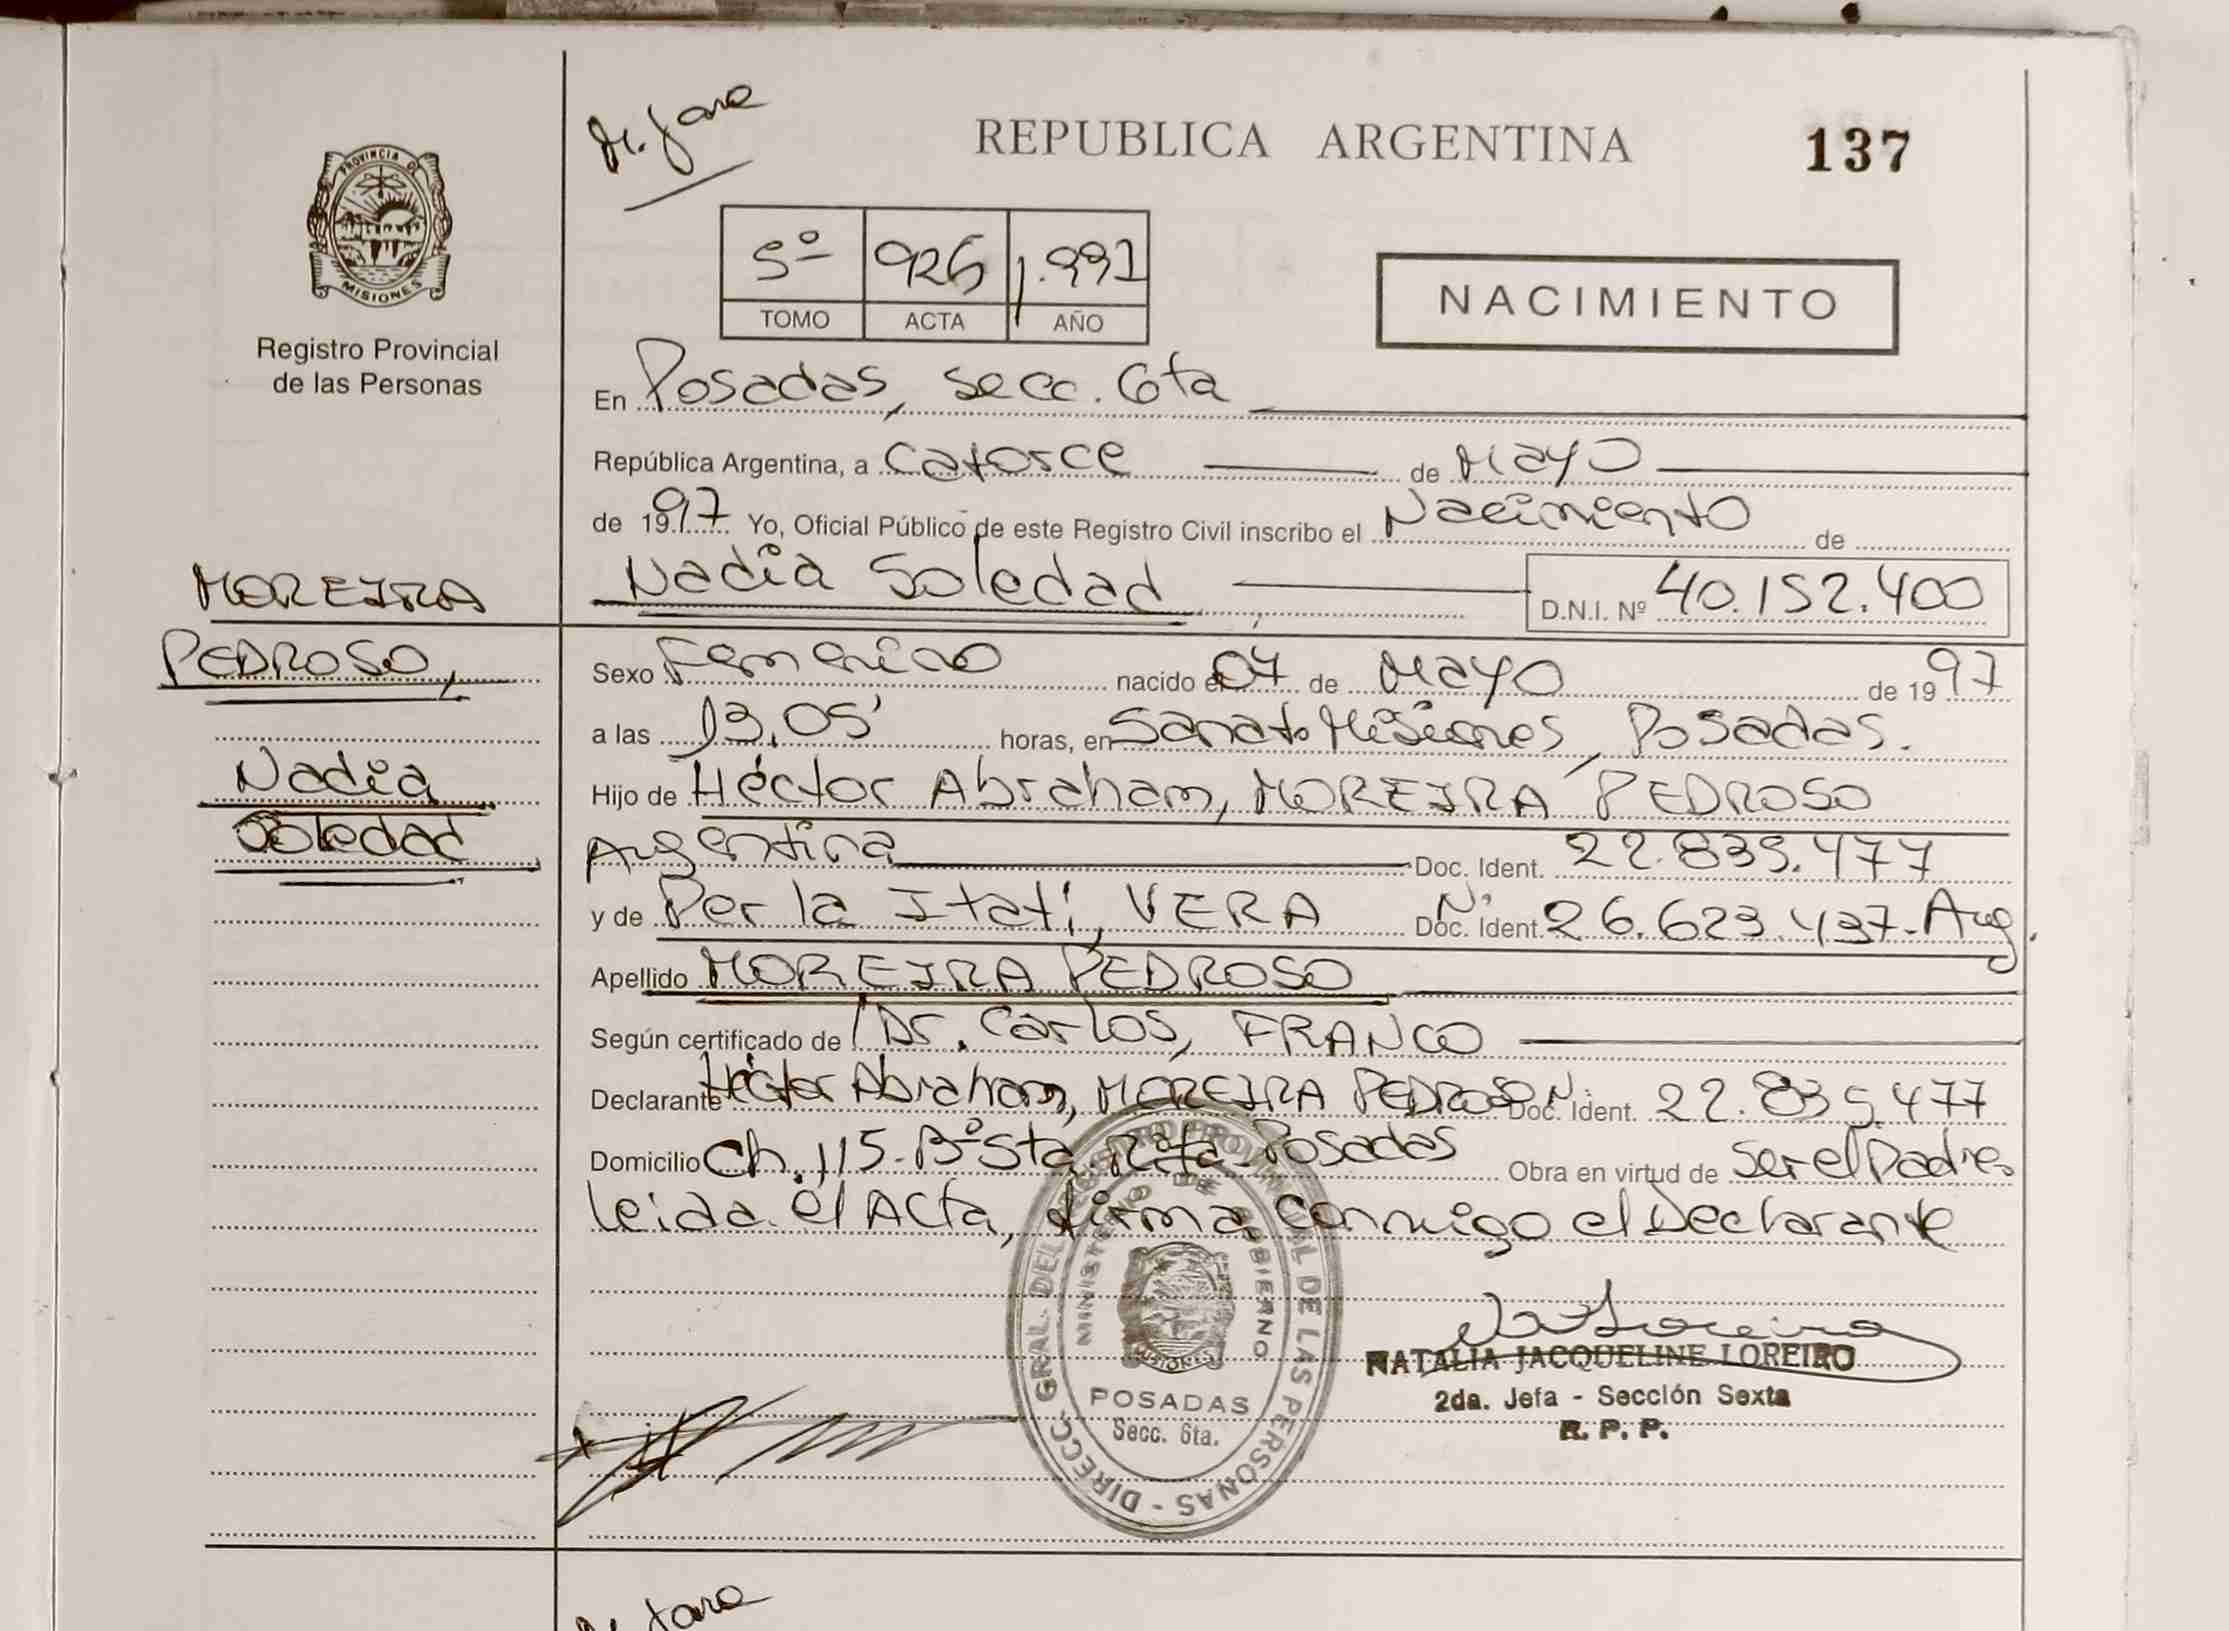 M. Jara
REPUBLICA ARGENTINA
137
PROVINCIA DE
MISIONES
Registro Provincial
de las Personas
5º 926 1.997
TOMO ACTA AÑO
NACIMIENTO
En Posadas, secc. 6ta
República Argentina, a Catorce de Mayo
de 1997 Yo, Oficial Público de este Registro Civil inscribo el Nacimiento de
Nadia Soledad
D.N.I. Nº 40.152.400
MOREIRA
PEDROSO,
Nadia
Soledad
Sexo Femenino nacido el 07 de Mayo de 1997
a las 13,05' horas, en Sanat. Misiones, Posadas.
Hijo de Héctor Abraham, MOREIRA PEDROSO
Argentina Doc. Ident. 22.835.477
y de Perla Itatí, VERA Doc. Ident. Nº 26.623.437-Arg.
Apellido MOREIRA PEDROSO
Según certificado de Dr. Carlos, FRANCO
Declarante Héctor Abraham, MOREIRA PEDROSO Doc. Ident. Nº 22.835.477
Domicilio Ch. 115-Bº Sta. Rita-Posadas Obra en virtud de ser el Padre
leida el Acta, firma conmigo el Declarante
DIRECC. GRAL. DEL REGISTRO PROVINCIAL DE LAS PERSONAS -
MINISTERIO DE GOBIERNO
MISIONES
POSADAS
Secc. 6ta.
NATALIA JACQUELINE LOREIRO
2da. Jefa - Sección Sexta
R. P. P.